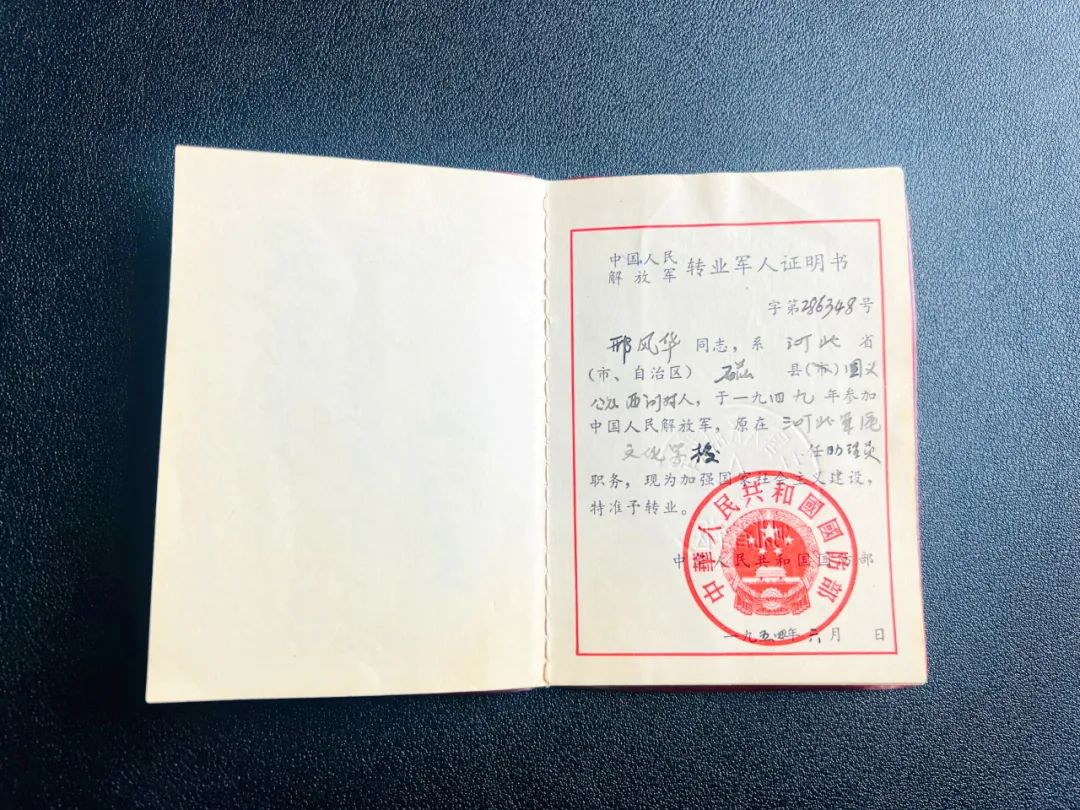 中国人民
解放军 转业军人证明书
字第286348号
邢风华 同志，系 河北 省
(市、自治区) 磁 县(市)固义
公社西河村人，于一九四九年参加
中国人民解放军，原在 河北军区
文化学校 任助理员
职务，现为加强国家社会主义建设，
特准予转业。
中华人民共和国国防部
中華人民共和國國防部
一九五四年六月 日